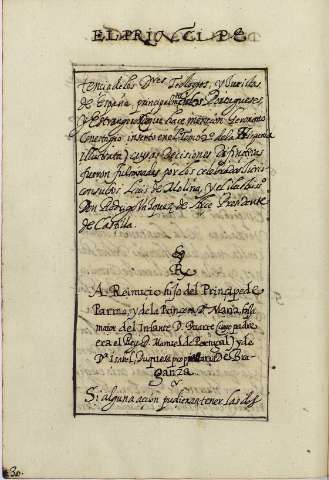 EL PRINCIPE
tencia de los D.res Teologos, y Juristas
de España, principalm.te los Portugueses,
y Estrangeros (que hace mencion Geronimo
Conestagio inserto en el Tomo 2.º de la Hispania
Illustrata) cuyas Decisiones definitivas
fueron fulminadas por los celebrados Juris
consultos Luis de Molina, y el ilustris.º
Don Rodrigo Vazquez de Arce Presidente
de Castilla.
A Reinucio hijo del Principe de
Parma, y de la Princesa D.ª Maria, hija
maior del Infante D. Duarte (cuyo padre
era el Rey D. Manuel de Portugal) y de
D.ª Isabel, Duquesa propietaria de Bra-
ganza.
Si alguna acion pudieran tener las dos